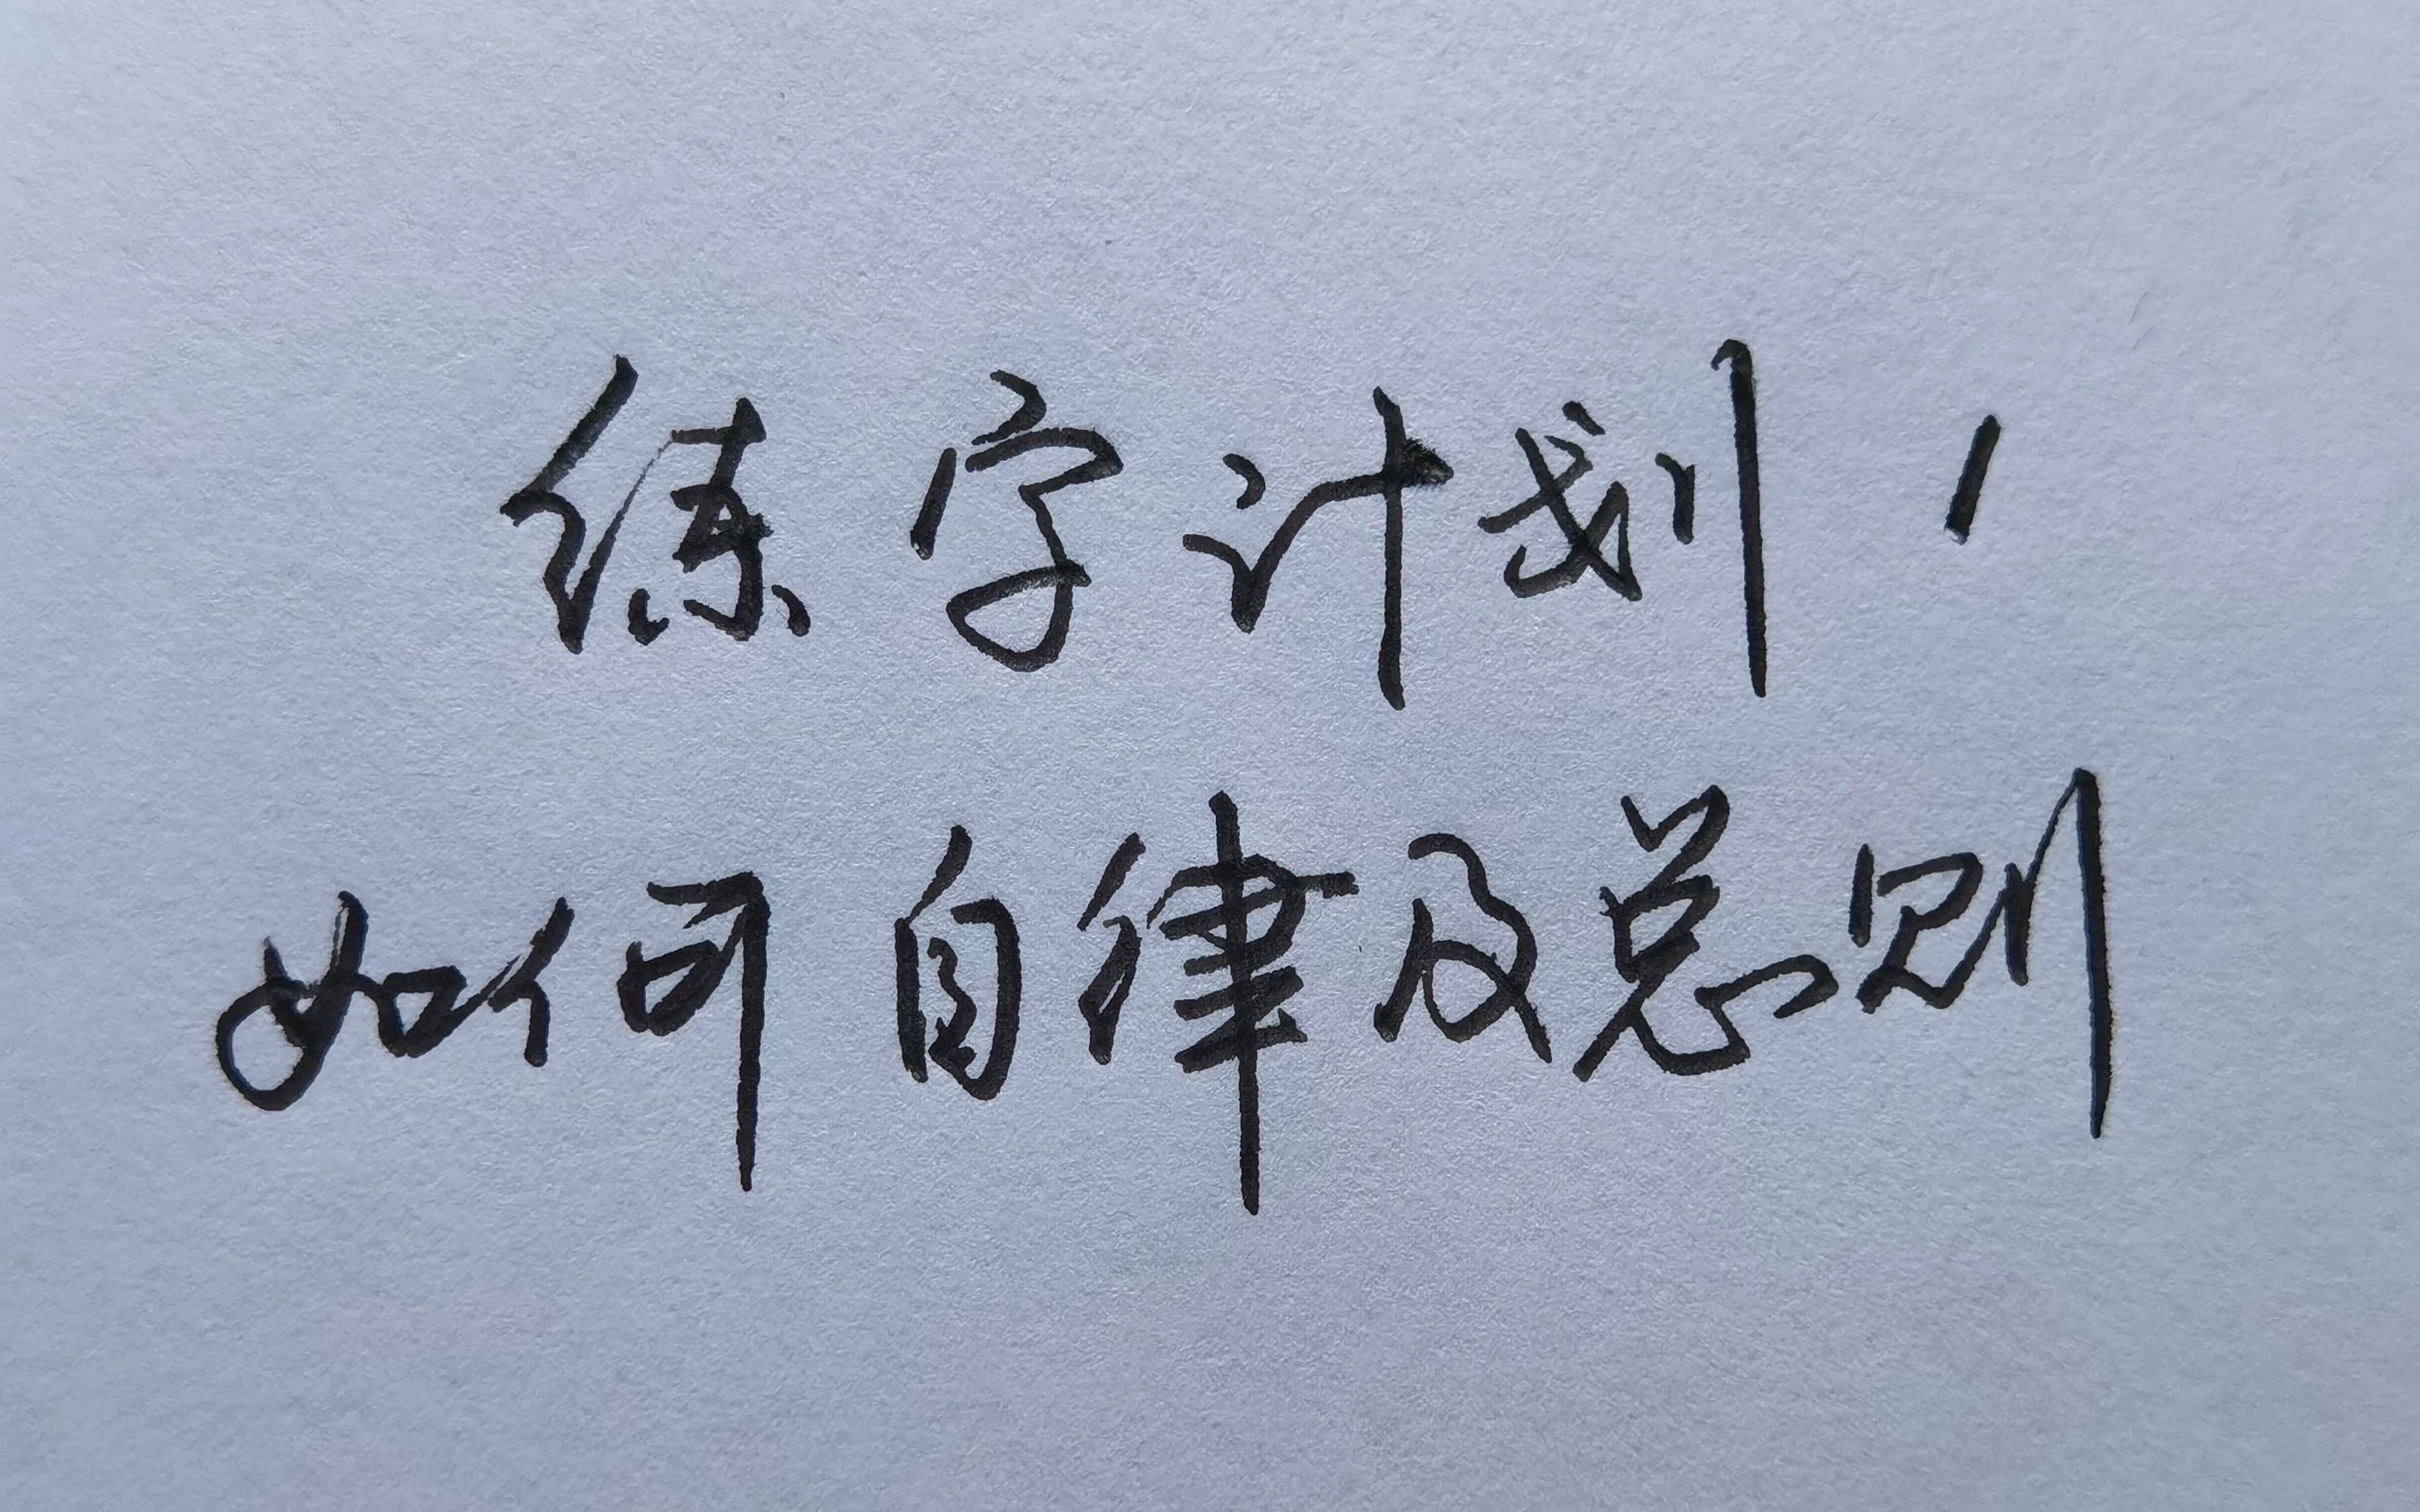 练字计划1
如何自律及总则